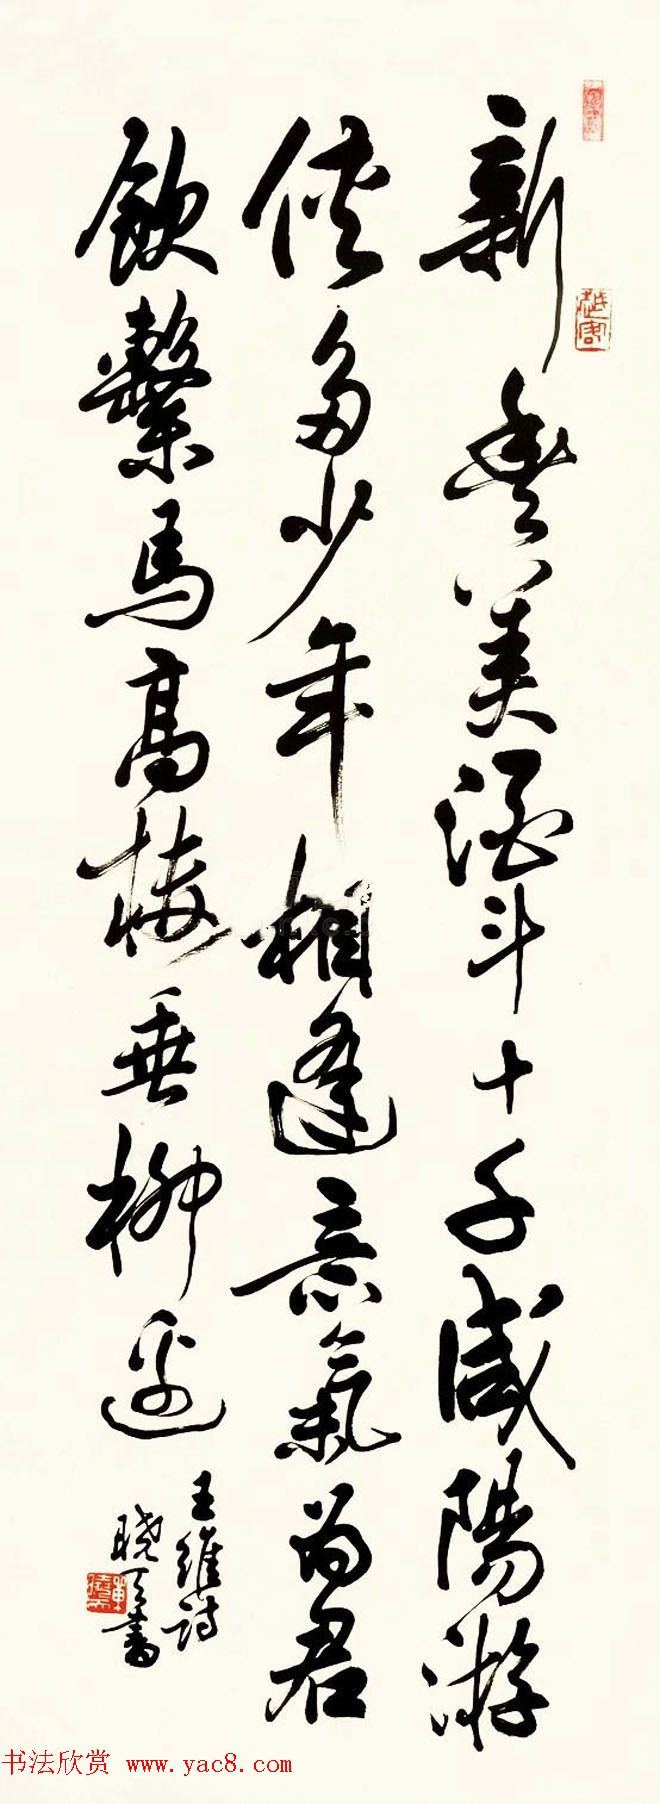 新豐美酒斗十千咸陽游
俠多少年相逢意氣為君
飲繫馬高樓垂柳邊
王維詩
曉天書
书法欣赏 www.yac8.com